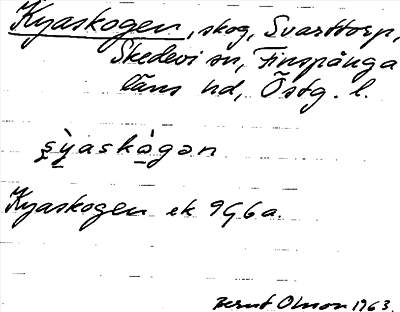 Kyaskogen, skog, Svarttorp,
Skedevi sn, Finspånga
läns hd, Östg. l.
ş̀ỳaskàgən
Kyaskogen ek 9G6a.
Bernt Olsson 1963.